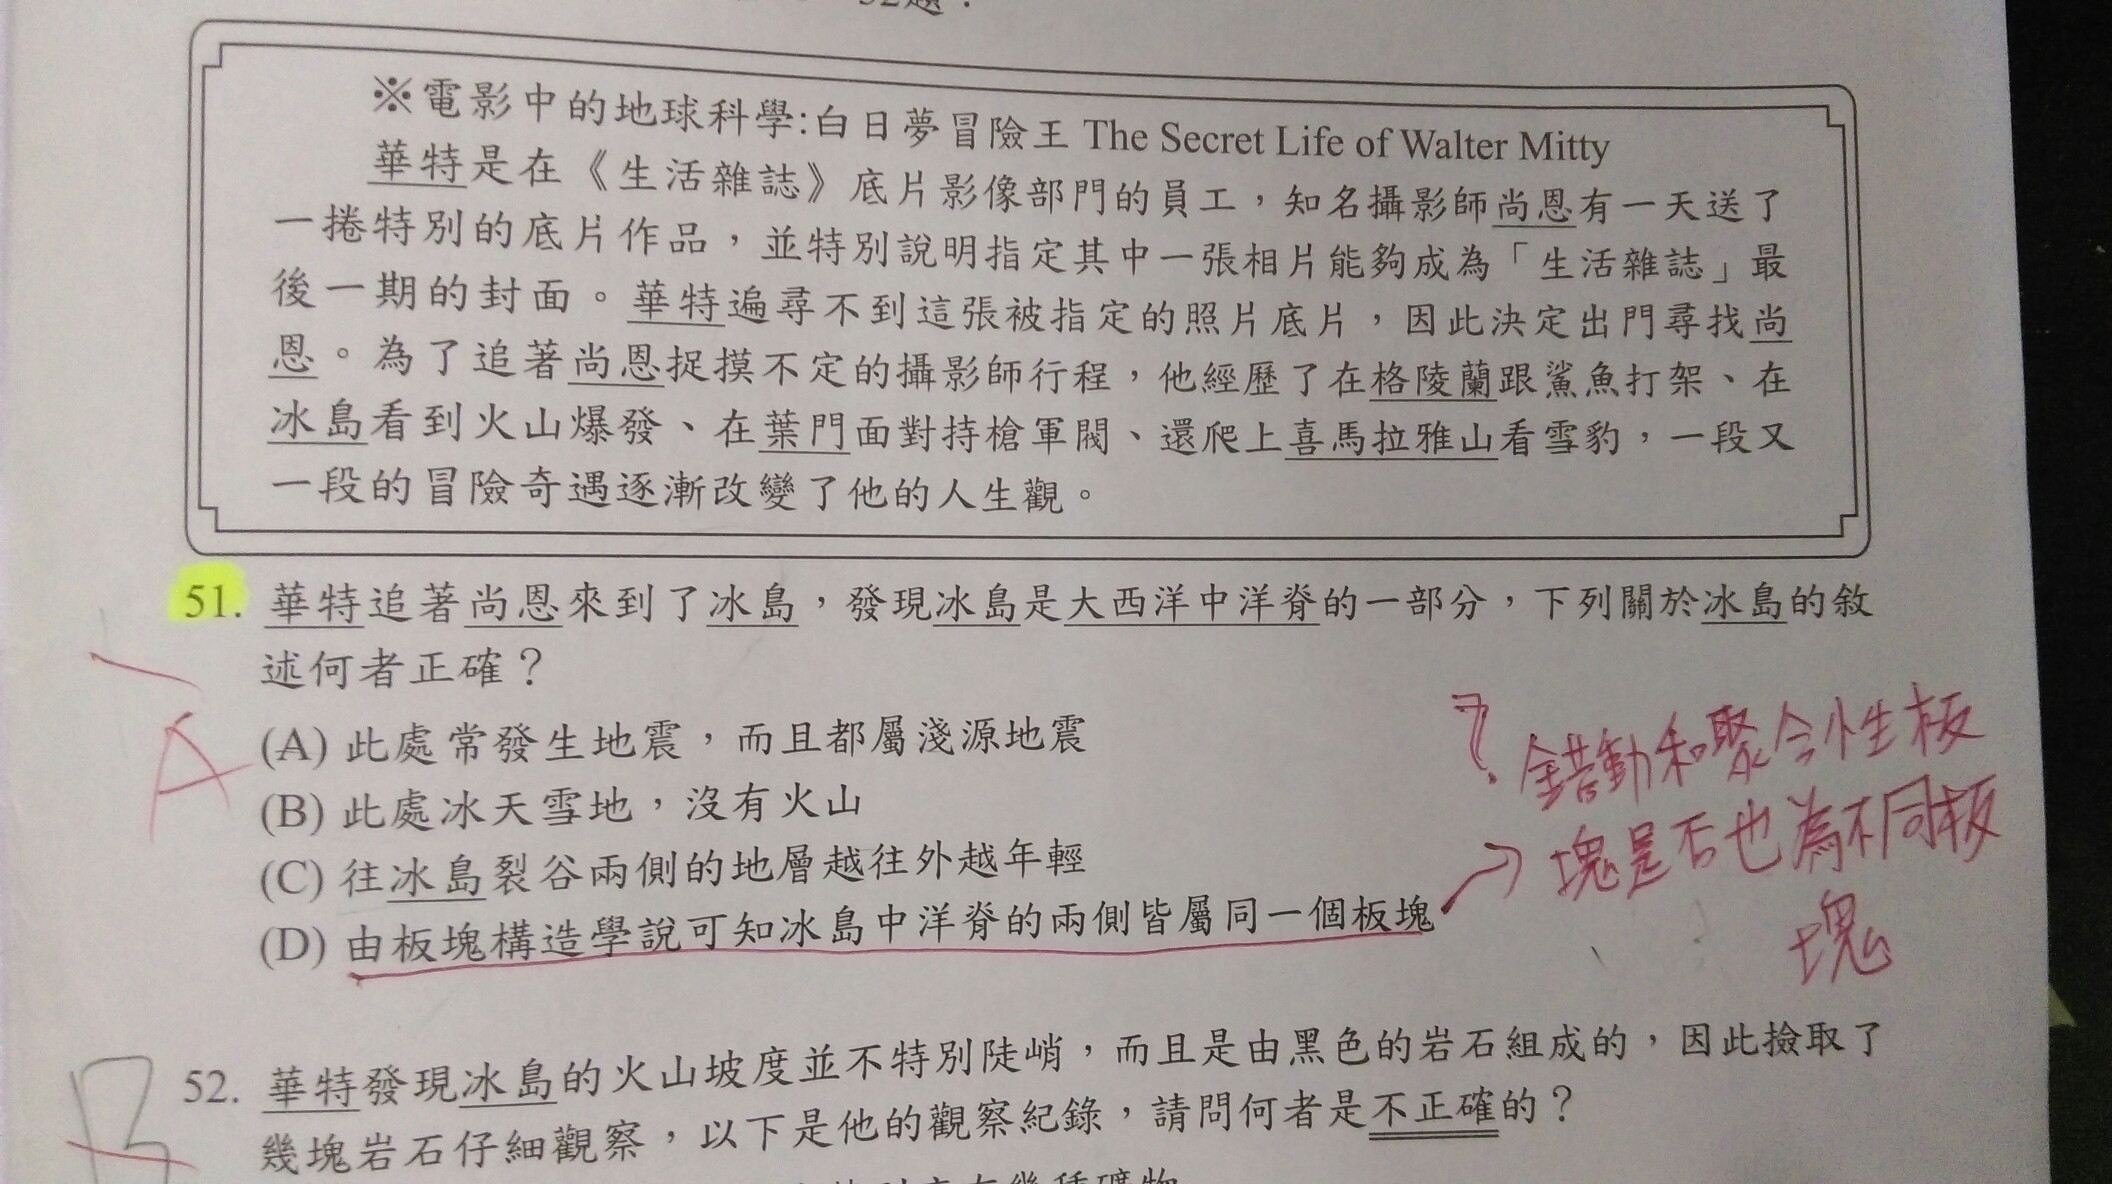 52題：
※電影中的地球科學:白日夢冒險王 The Secret Life of Walter Mitty
華特是在《生活雜誌》底片影像部門的員工，知名攝影師尚恩有一天送了
一捲特別的底片作品，並特別說明指定其中一張相片能夠成為「生活雜誌」最
後一期的封面。華特遍尋不到這張被指定的照片底片，因此決定出門尋找尚
恩。為了追著尚恩捉摸不定的攝影師行程，他經歷了在格陵蘭跟鯊魚打架、在
冰島看到火山爆發、在葉門面對持槍軍閥、還爬上喜馬拉雅山看雪豹，一段又
一段的冒險奇遇逐漸改變了他的人生觀。
51. 華特追著尚恩來到了冰島，發現冰島是大西洋中洋脊的一部分，下列關於冰島的敘
述何者正確？
A
(A) 此處常發生地震，而且都屬淺源地震
(B) 此處冰天雪地，沒有火山
(C) 往冰島裂谷兩側的地層越往外越年輕
(D) 由板塊構造學說可知冰島中洋脊的兩側皆屬同一個板塊
? 錯動和聚合性板
→塊是否也為不同板
塊
B
52. 華特發現冰島的火山坡度並不特別陡峭，而且是由黑色的岩石組成的，因此撿取了
幾塊岩石仔細觀察，以下是他的觀察紀錄，請問何者是不正確的？
幾種礦物